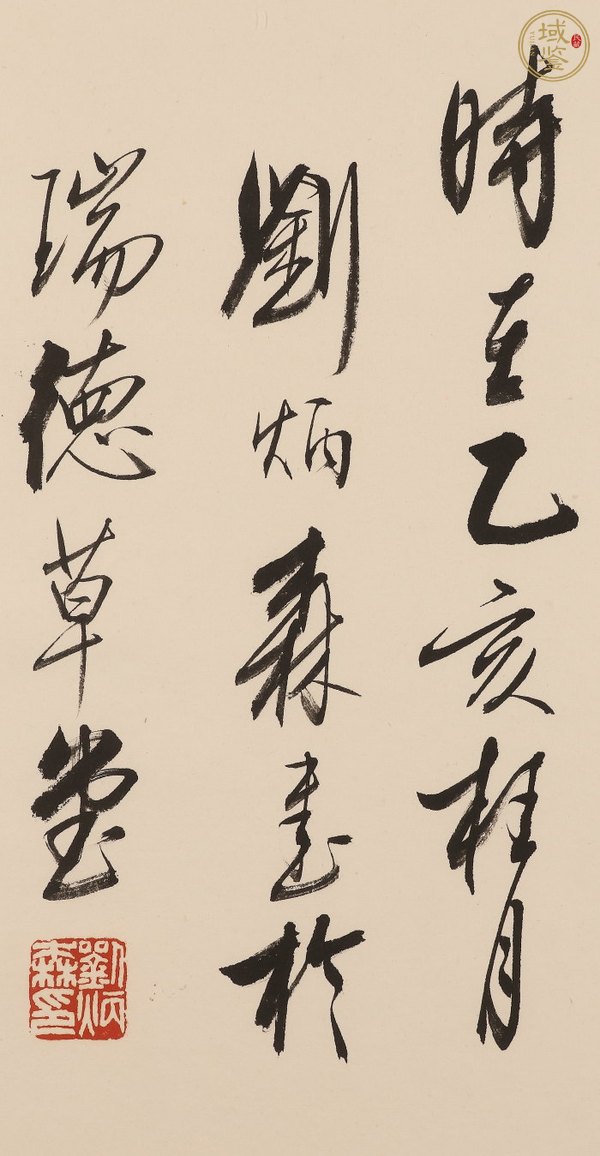 時在乙亥桂月
劉炳森書於
瑞德草堂
劉炳森印
域鉴